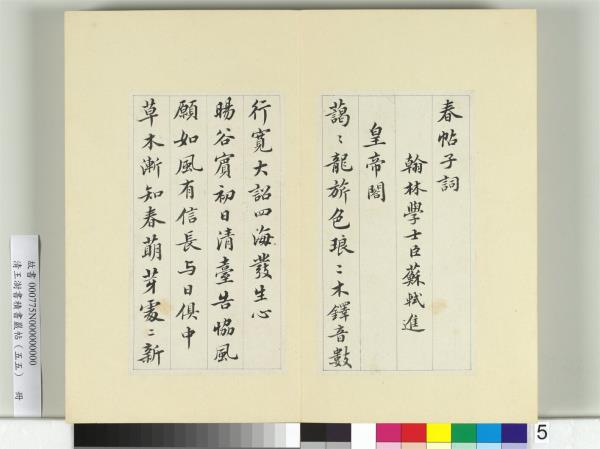 春帖子詞
翰林學士臣蘇軾進
皇帝閣
藹〻龍旂色琅〻木鐸音數
行寬大詔四海發生心
暘谷賓初日清臺告恊風
願如風有信長与日俱中
草木漸知春萌芽處〻新
故書 000775N000000000
清王澍書積書巖帖（五五） 冊
5